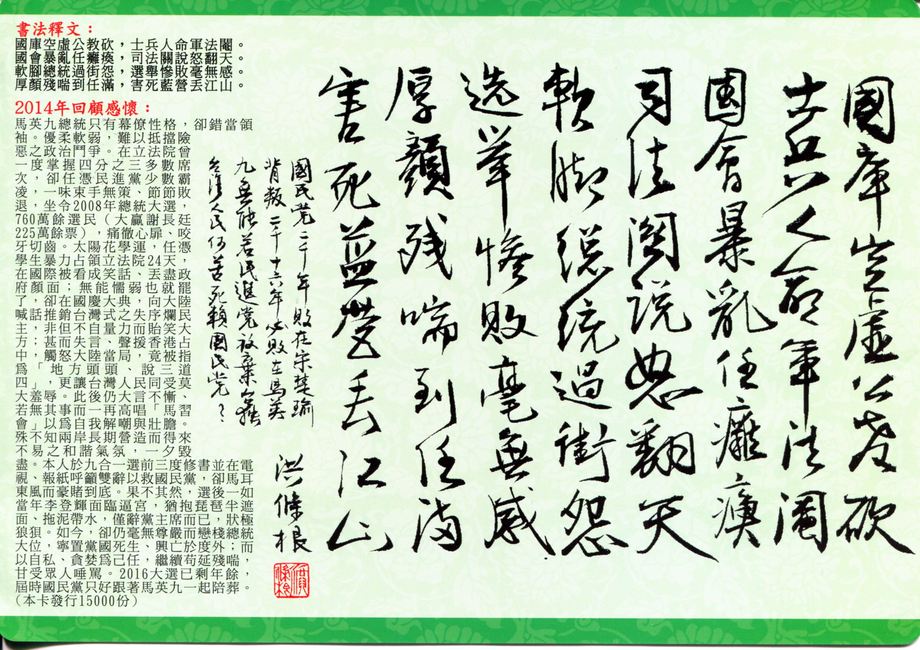 書法釋文：
國庫空虛公教砍，士兵人命軍法閹。
國會暴亂任癱瘓，司法關說怒翻天。
軟腳總統過街怨，選舉慘敗毫無感。
厚顏殘喘到任滿，害死藍營丟江山。
2014年回顧感懷：
馬英九總統只有幕僚性格，卻錯當領
袖。優柔軟弱，難以抵擋險
惡之政治鬥爭。在立法院曾
一度掌握四分之三多數席
次，卻任憑民進黨少數霸
凌，一味束手無策、節節敗
退，坐令2008年總統大選，
760萬餘選民（大贏謝長廷
225萬餘票），痛徹心扉、咬
牙切齒。太陽花學運，任憑
學生暴力占領立法院24天，
在國際被看成笑話、丟盡政
府顏面；無能懦弱也就罷
了，卻在國慶大典，向大陸
喊話推銷台灣式之失序爛民
主，非但不自量力而貽笑大
方；甚而失言、聲援香港占
中，觸怒大陸當局，竟被指
為「地方頭頭、說三道
四」，更讓台灣人民同受莫
大羞辱。此後仍大言不慚、
若無其事而一再高唱「馬習
會」以為自我解嘲與壯膽。
殊不知兩岸長期營造而得來
不易之和諧氣氛，一夕毀
盡。本人於九合一選前三度修書並在電
視、報紙呼籲雙辭以救國民黨，卻馬耳
東風而豪賭到底。果不其然，選後一如
當年李登輝面臨逼宮，猶抱琵琶半遮
面、拖泥帶水，僅辭黨主席而已，狀極
狼狽。如今，卻仍毫無尊嚴而戀棧總統
大位，寧置黨國死生、興亡於度外；而
以自私、貪婪為己任，繼續苟延殘喘，
甘受眾人唾罵。2016大選已剩年餘，
屆時國民黨只好跟著馬英九一起陪葬。
（本卡發行15000份）
國庫空虛公教砍
士兵人命軍法閹
國會暴亂任癱瘓
司法關說怒翻天
軟腳總統過街怨
选举慘敗毫無感
厚顏殘喘到任滿
害死藍營丟江山
國民党二千年敗在宋楚瑜
背叛二千十六年必敗在馬英
九無能若民進党放棄台獨
台湾人民何苦死賴國民党？
洪條根